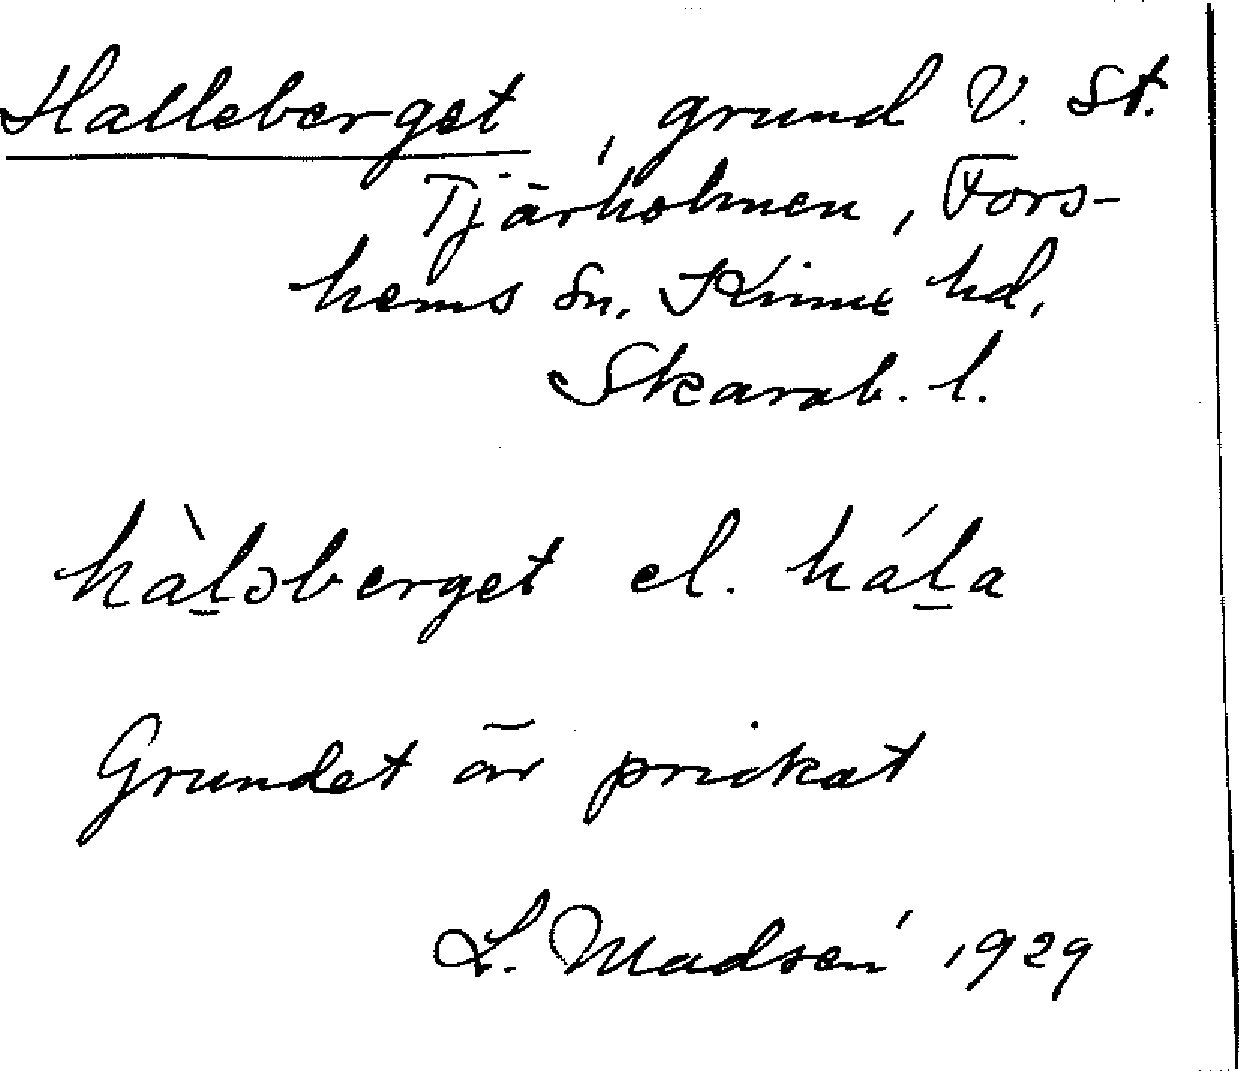 Halleberget, grund V. St.
Tjärholmen, Fors-
hems sn. Kinne hd,
Skarab. l.
hàl̠ɔberget el. hál̠a
Grundet är prickat
L. Madsén 1929